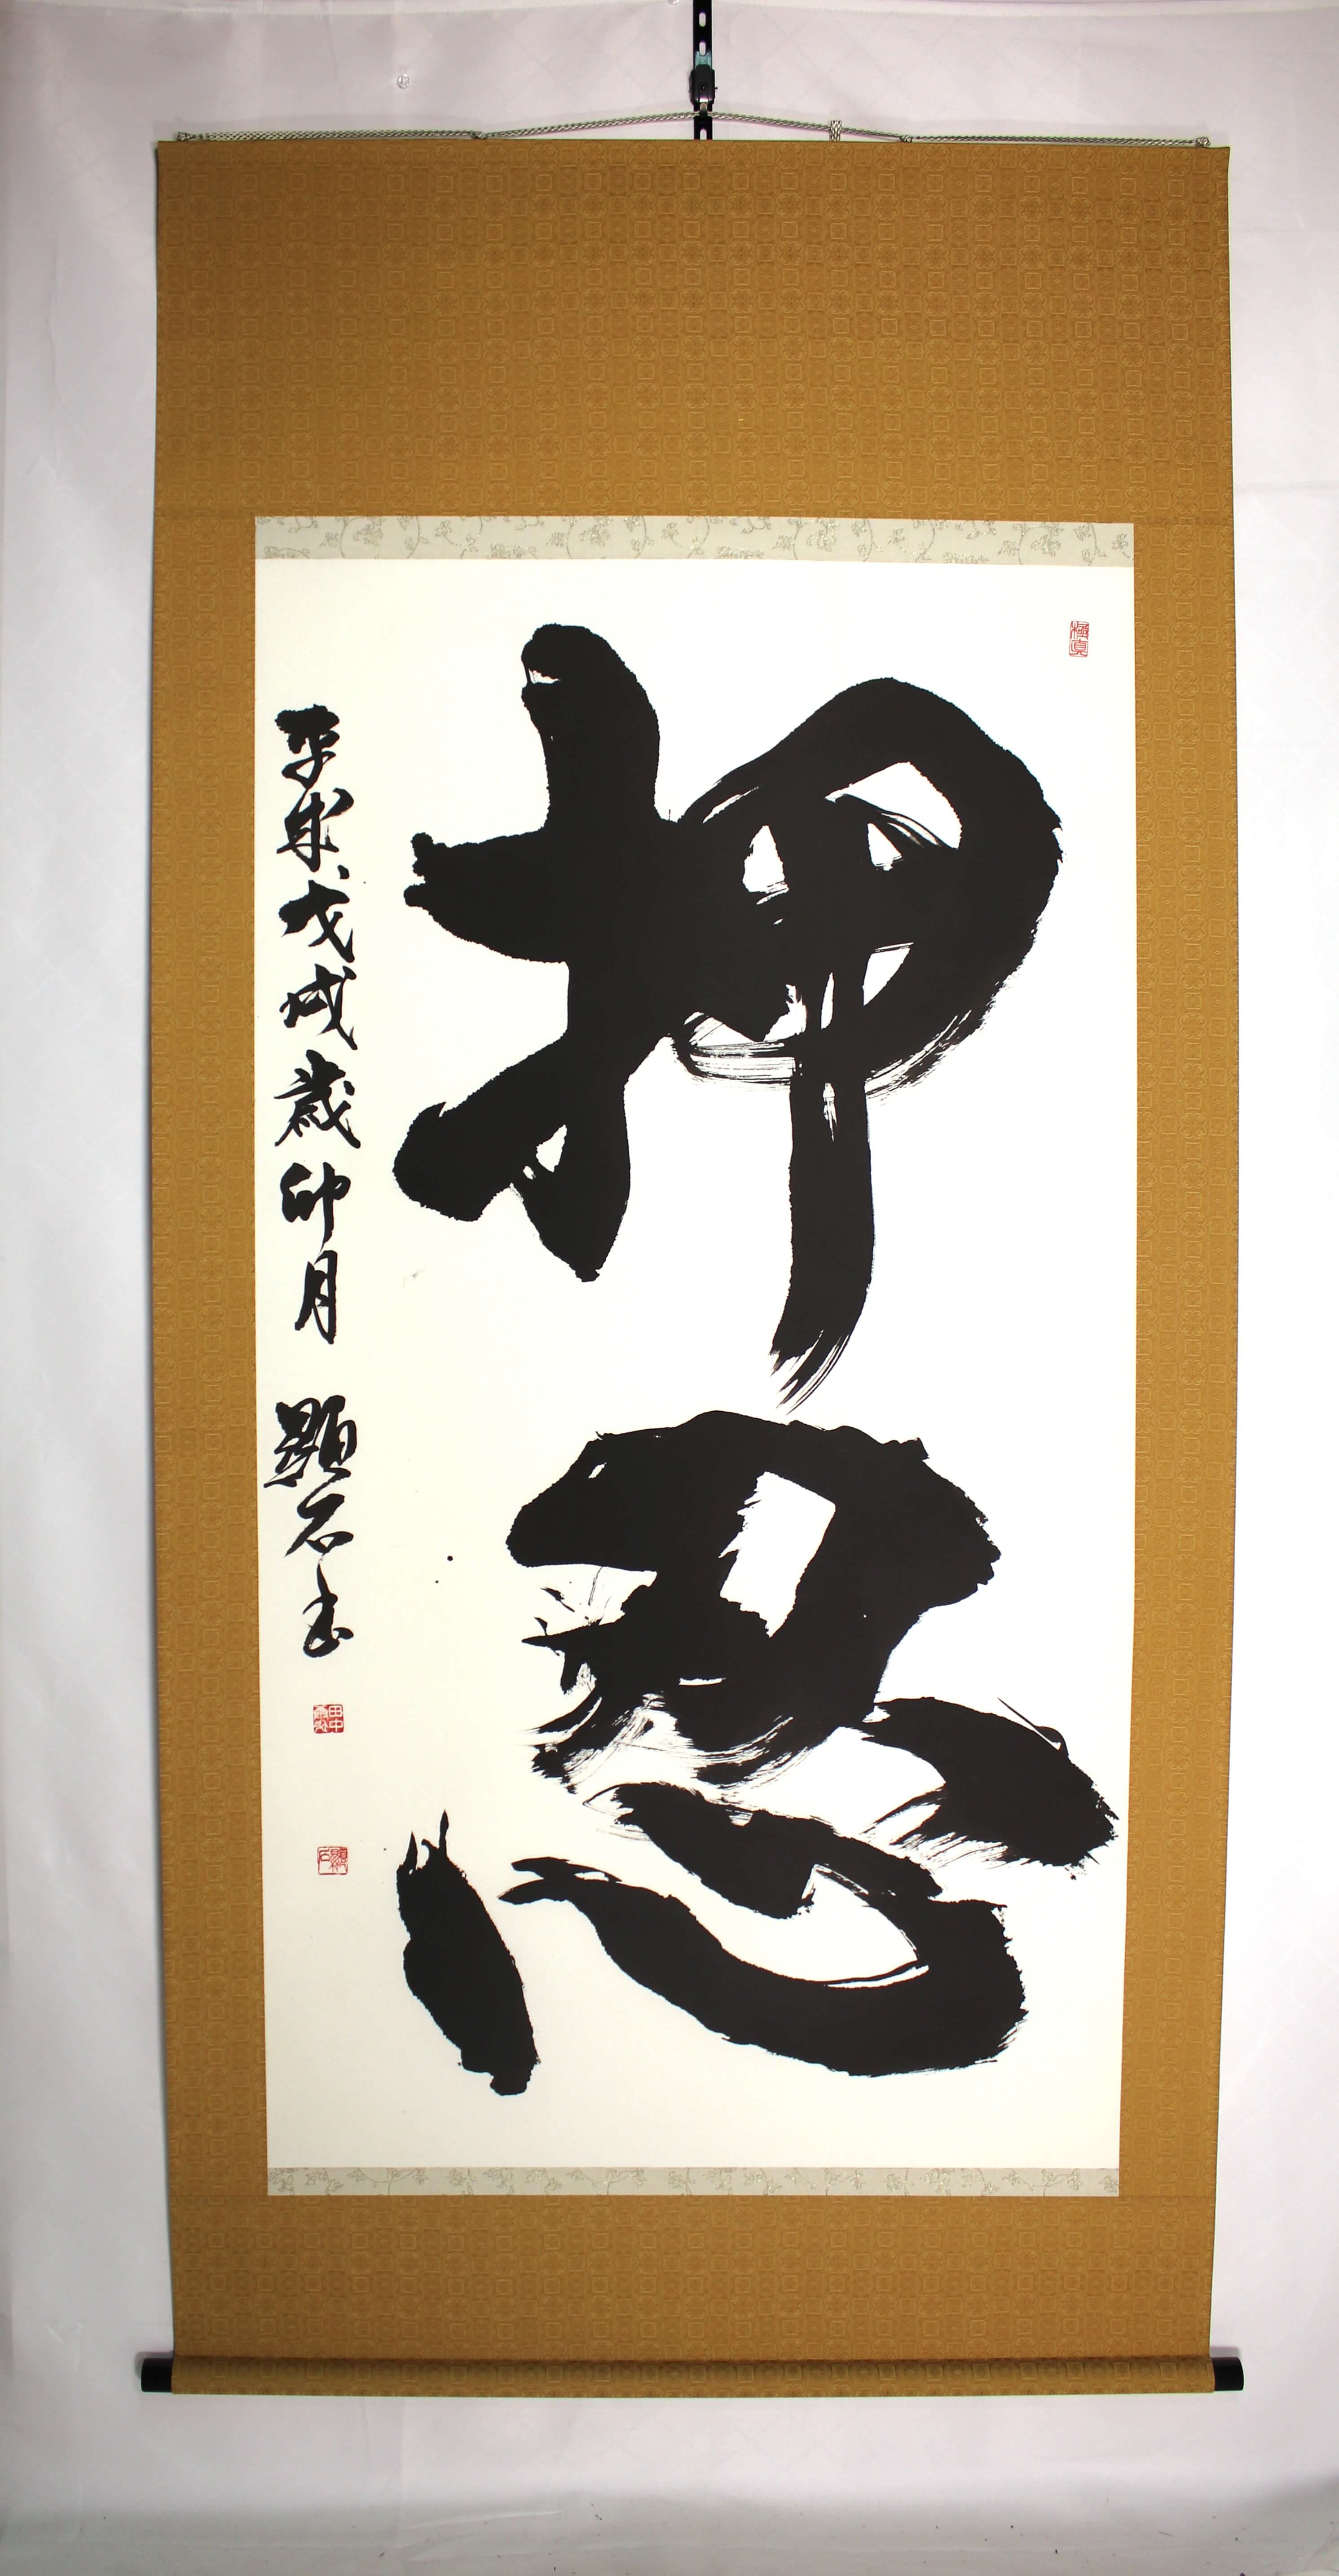 極真
押忍
平成戊戌歳卯月 顕石書
田中
顕石